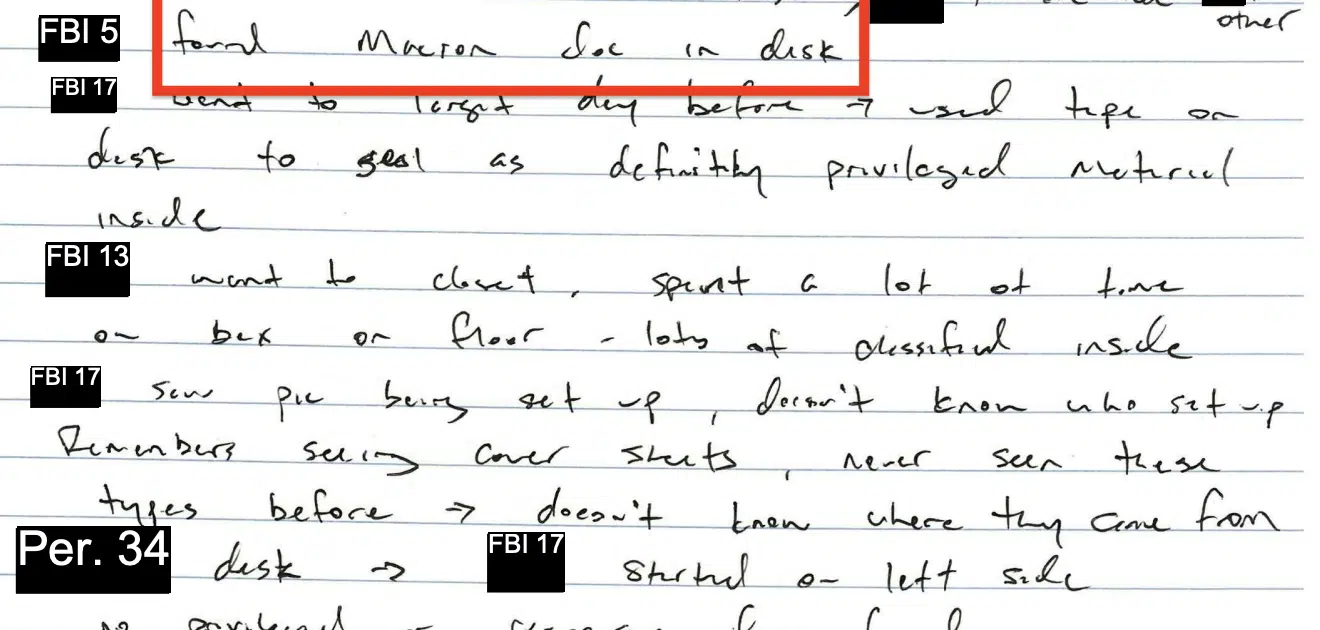 other
FBI 5 found Macron doc in desk
FBI 17 went to target day before → used tape on
desk to seal as definitely privileged material
inside
FBI 13 went to closet, spent a lot of time
on box on floor - lots of classified inside
FBI 17 saw pic being set up, doesn't know who set up
Remembers seeing cover sheets, never seen these
types before → doesn't know where they came from
Per. 34 desk → FBI 17 started on left side
no privileged